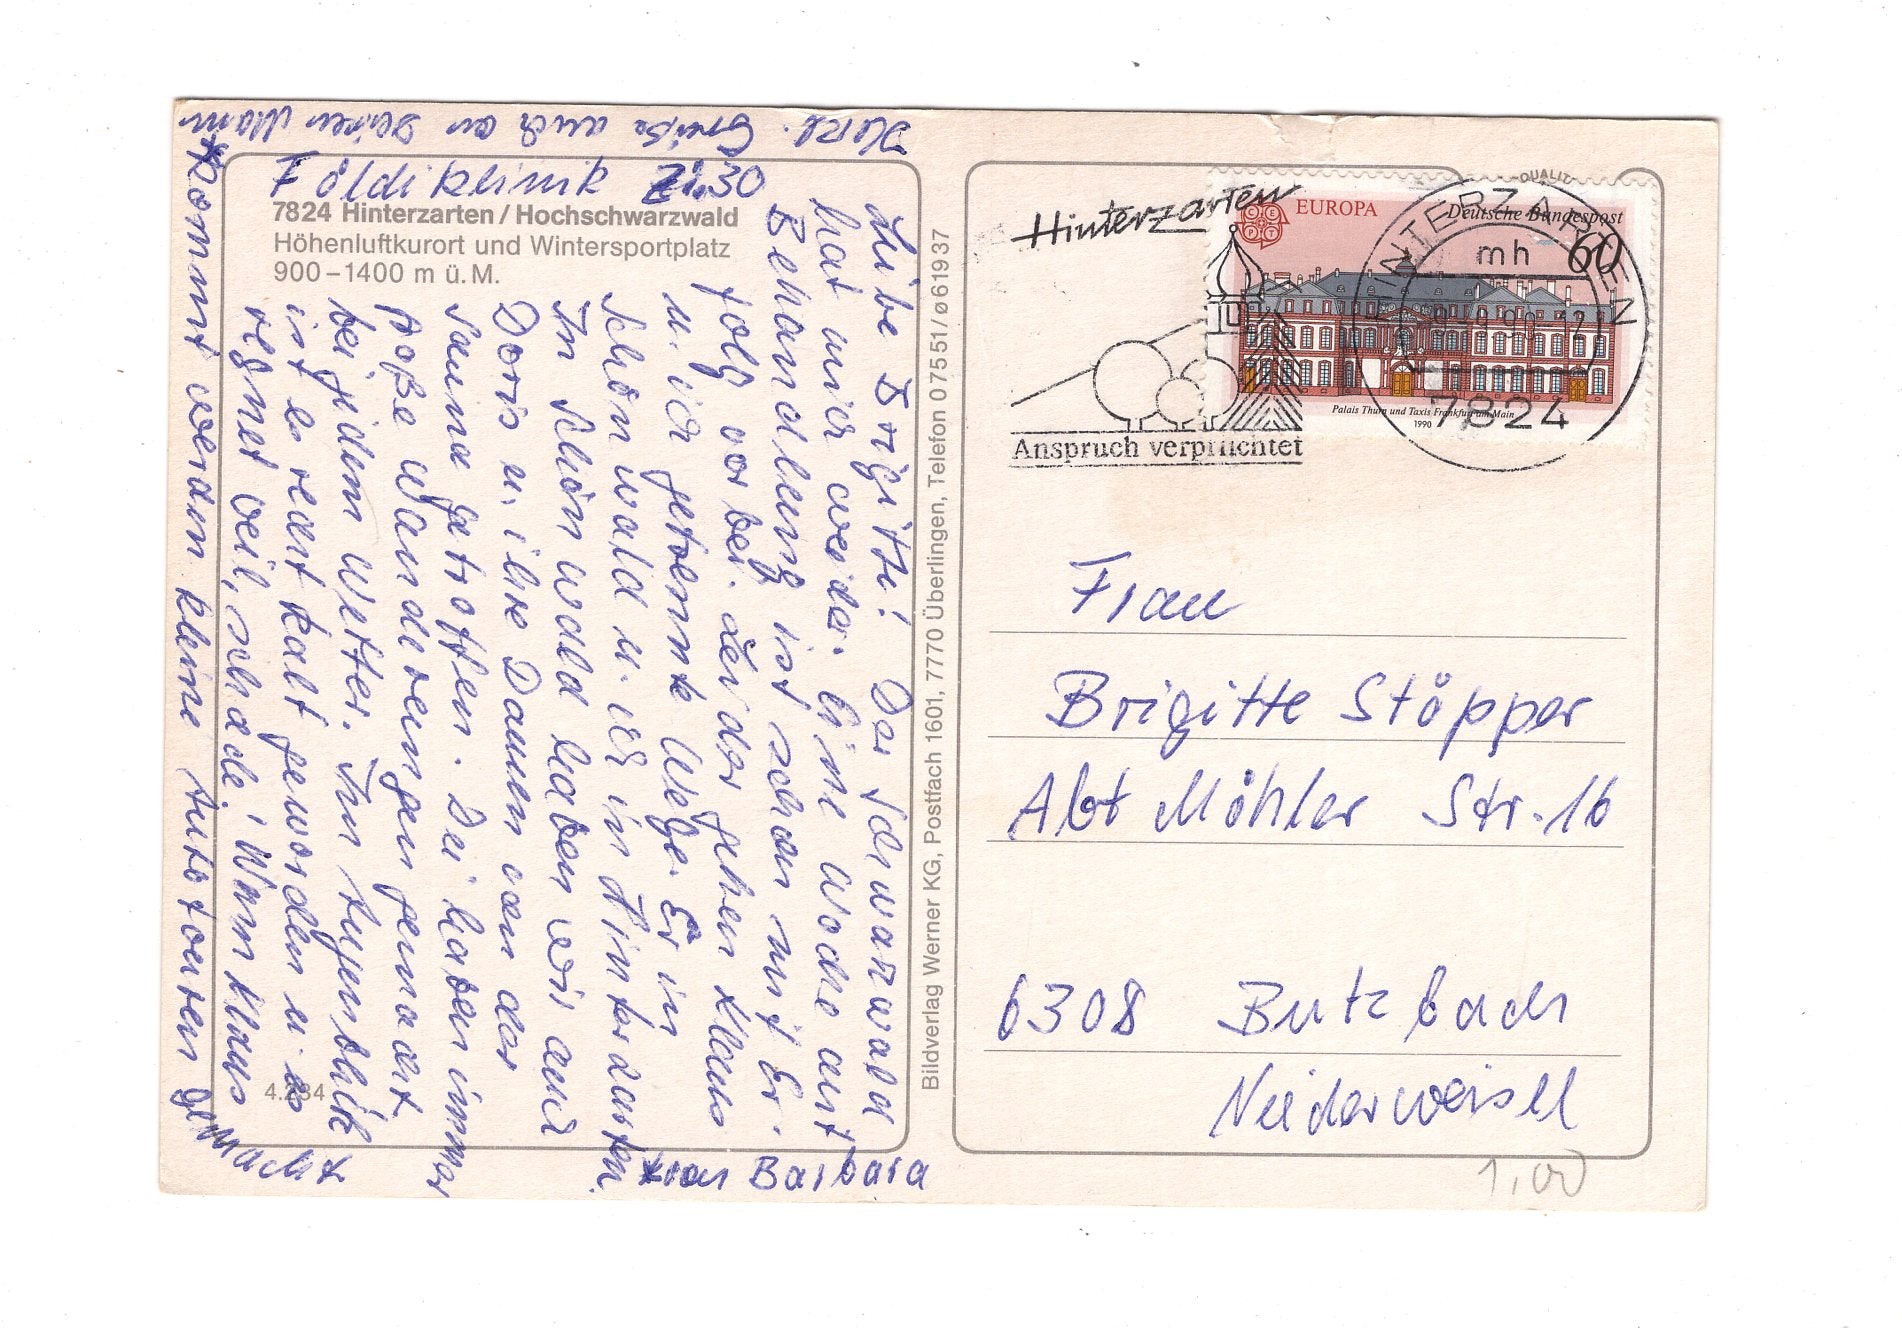 Földiklinik Zi. 30
7824 Hinterzarten/Hochschwarzwald
Höhenluftkurort und Wintersportplatz
900–1400 m ü. M.
Liebe Brigitte! Der Schwarzwald
hat mich wieder. Eine Woche auf
Behandlung ist schon mit Er-
folg vorbei. Leider gehen Klaus
u. ich getrennte Wege. Er in
Schönwald u. ich in Hinterzarten.
In Schönwald haben wir auch
Doris u. ihre Damen von der
Sauna getroffen. Die haben immer
große Wanderungen gemacht
bei jedem Wetter. Im Augenblick
ist es recht kalt geworden u. es
regnet weil, schade! Wenn Klaus
kommt werden kleine Autotouren
gemacht
Barbara
Grüße auch an Deinen Mann
4.234
Bildverlag Werner KG, Postfach 1601, 7770 Überlingen, Telefon 07551/ø61937
Hinterzarten
Anspruch verpflichtet
EUROPA
CEPT
Deutsche Bundespost
60
Palais Thurn und Taxis Frankfurt am Main
1990
HINTERZARTEN
mh
7824
Frau
Brigitte Stöpper
Abt Möhler Str. 16
6308 Butzbach
Niederweisel
1,00